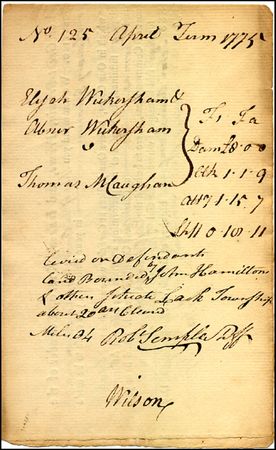 No. 125 April Term 1775
Elijah Wickersham &
Abner Wickersham
v
Thomas McCaughan
Fi Fa
Dam £8.0.0
Clk 1.1.9
Att 1.15.7
Shff 0.10.11
Levied on Defendants
Land Bounded by John Hamilton
& others Situate Lack Township
about 20 acrs Clear'd
Miles 84 Rob Semple Shff
Wilson